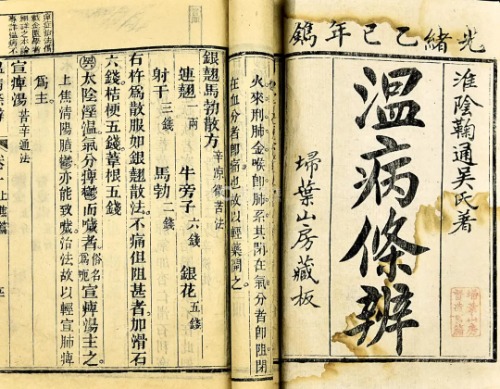 光緒乙巳年鐫
淮陰鞠通吳氏著
温病條辨
埽葉山房藏板
火來刑肺金喉即肺系其閉在氣分者即阻閉
在血分者即痛也故以輕藥開之
銀翹馬勃散方 辛凉微苦法
連翹一兩 牛旁子六錢 銀花五錢
射干三錢 馬勃二錢
右杵爲散服如銀翹散法不痛但阻甚者加滑石
六錢桔梗五錢葦根五錢
太陰溼温氣分痺鬱而噦者俗名爲呃宣痺湯主之
上焦清陽膹鬱亦能致噦治法故以輕宣肺痺
爲主
宣痺湯 苦辛通法